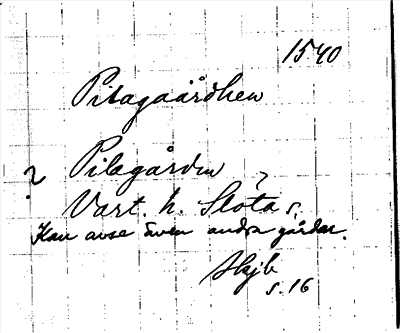 1540
Pilagaårdhen
? Pilagården
Vart. h. Slöta s.
Kan avse även andra gårdar.
Skjb
s. 16